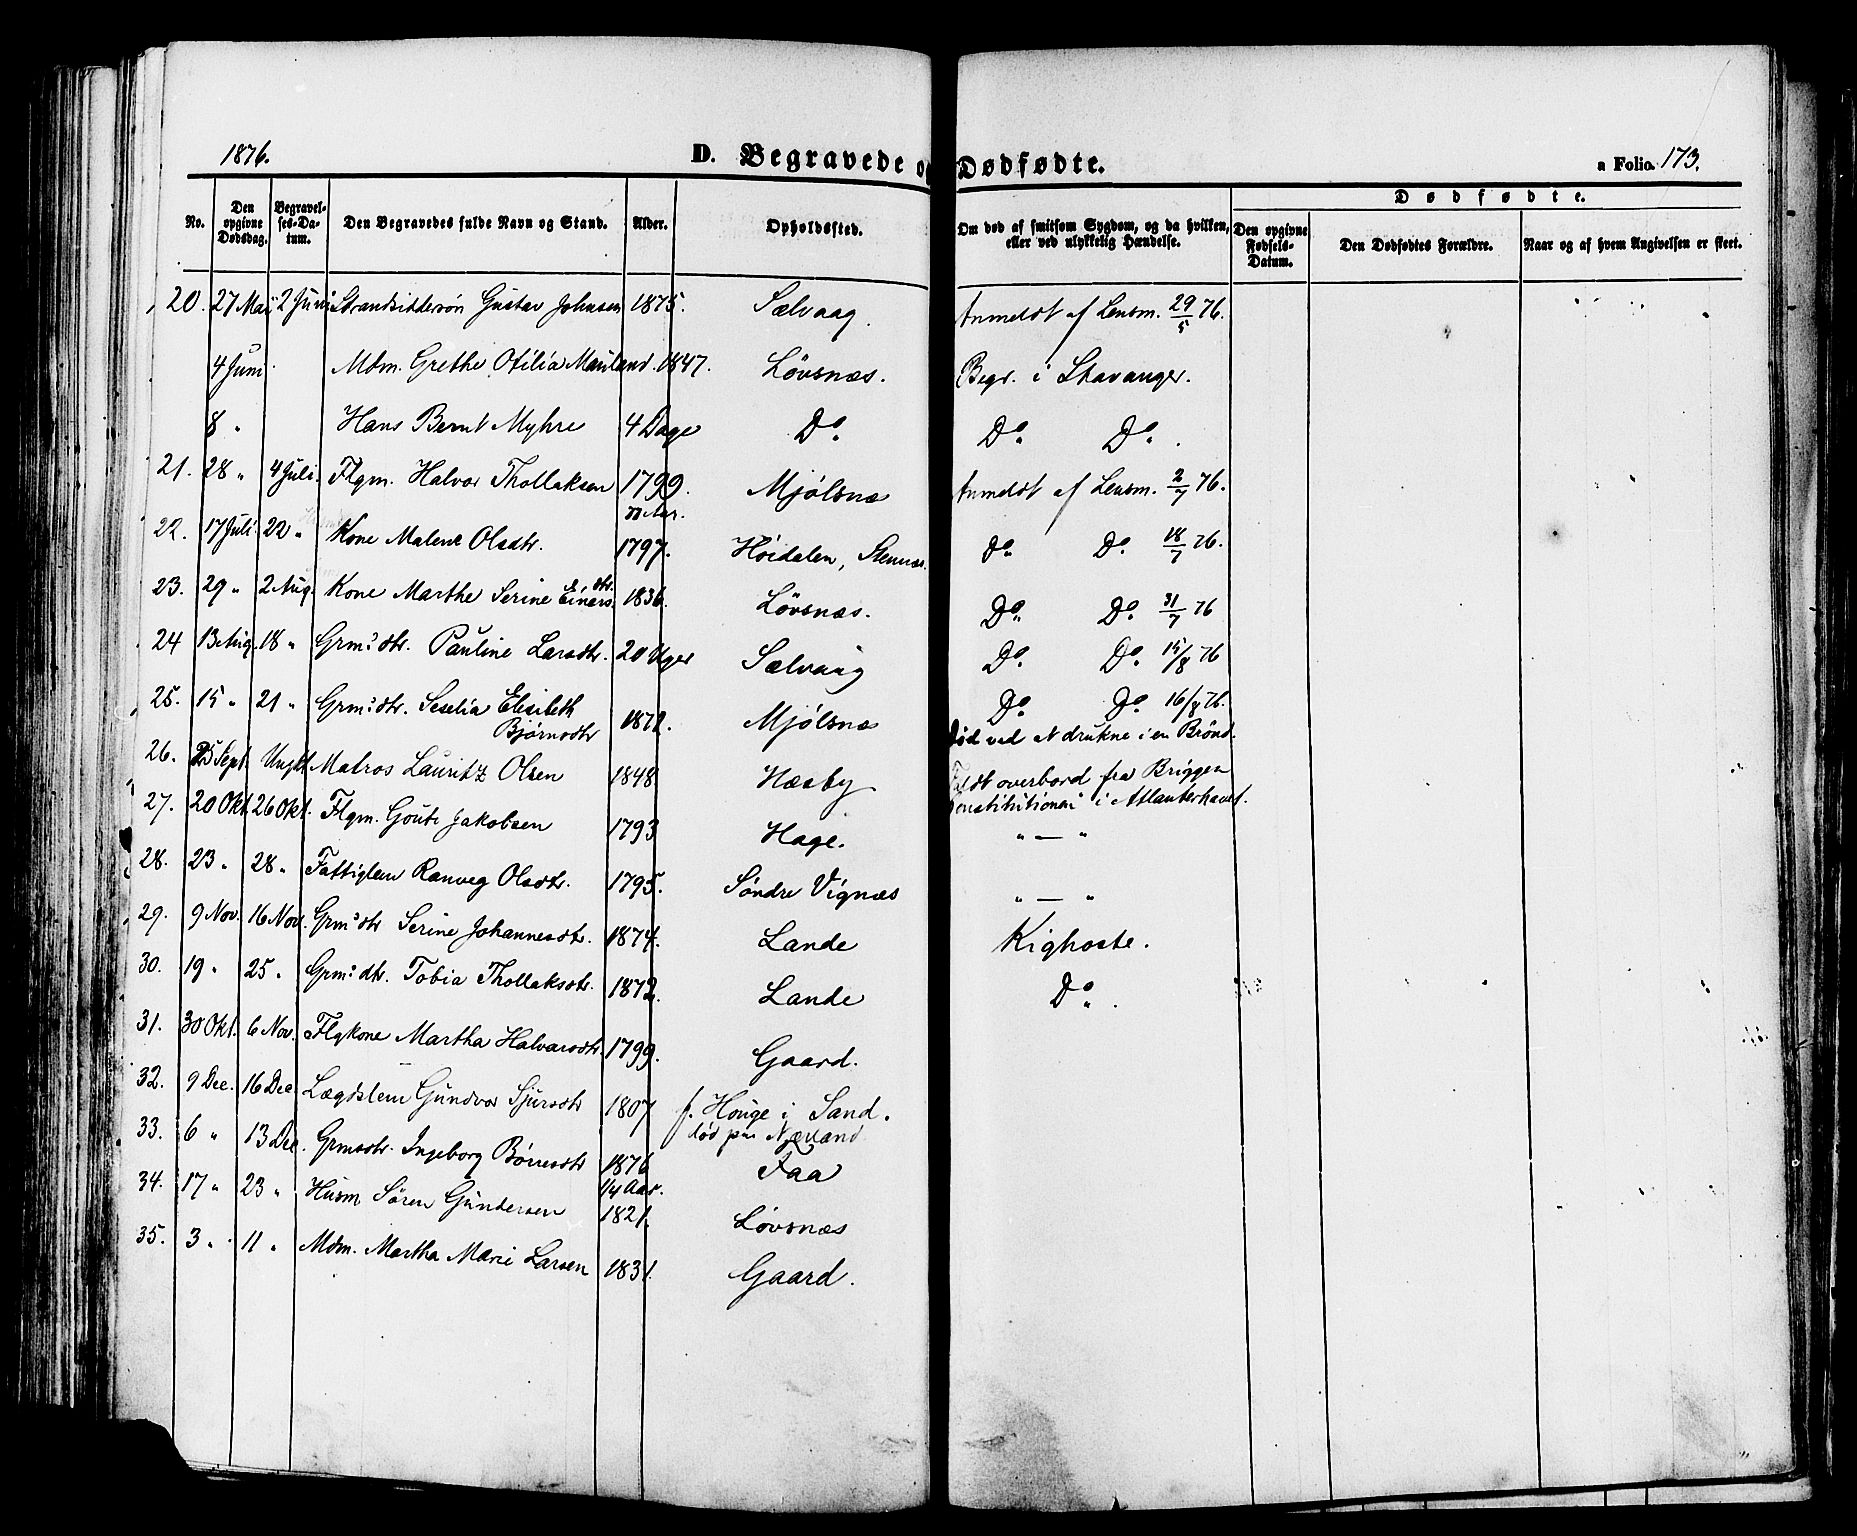 1876. D. Begravede og Dødfødte. a Folio. 173.
No. Den opgivne Dødsdag. Begravelses-Datum. Den Begravedes fulde Navn og Stand. Alder. Opholdssted. Om død af smitsom Sygdom, og da hvilken, eller ved ulykkelig Hændelse. Dødfødte. Den opgivne Fødsels-Datum. Den Dødfødtes Forældre. Naar og af hvem Angivelsen er skeet.
20. 27 Mai 2 Juni Strandsiddersøn Gustav Johnsen 1875. Sælvaag. Anmeldt af Lensm. 29/5 76.
4 Juni Mdm. Grethe Otilia Mauland. 1847. Løvsnæs. Begr. i Stavanger.
8 " Hans Bernt Myhre 4 Dage Do Do Do.
21. 28 " 4 Juli. Flgm. Halvor Thollaksen 1799. Mjølsnæ Anmeldt af Lensm. 2/7 76.
22. 17 Juli. 22 " Kone Malene Olsdtr. 1797. Høidalen, Stennæs. Do Do. 18/7 76.
23. 29 " 2 Aug. Kone Marthe Serine Einarsdtr. 1836. Løvsnæs. Do Do. 31/7 76
24 13 Aug. 18 " Grm: dtr. Pauline Larsdtr. 20 Uger Sælvaag Do. Do. 15/8 76
25. 15 " 21 " Grm: dtr. Seselia Elisibeth
Bjørnsdtr 1872. Mjølsnæ Do. Do. 16/8 76.
Død ved at drukne i en Brønd.
26. 25 Sept. Ungk. Matros Lauritz Olsen 1848 Hæsby Faldt overbord fra Briggen
"Constitutionen" i Atlanterhavet.
27. 20 Okt. 26 Okt. Flgm. Goute Jakobsen 1793 Hage. " — "
28. 23 " 28 " Fattiglem Ranveg Olsdtr. 1795. Søndre Vignæs " — "
29. 9 Nov. 16 Nov. Grm: dtr Serine Johannesdtr. 1874. Lande Kighoste.
30. 19 " 25 " Grm: dtr. Tobia Thollaksdtr. 1872. Lande Do.
31. 30 Okt. 6 Nov. Flgkone Martha Halvorsdtr. 1799. Gaard.
32. 9 Dec. 16 Dec Lægdslem Gundvor Sjursdtr 1807 f. Houge i Sand.
død paa Næeland
33. 6 " 13 Dec. Grmsdtr. Ingeborg Børresdtr 1876
1/4 Aar. Faa
34. 17 " 23 " Husm Søren Gundersen 1821. Løvsnæs
35. 3 " 11 " Mdm. Martha Marie Larsen 1831. Gaard.